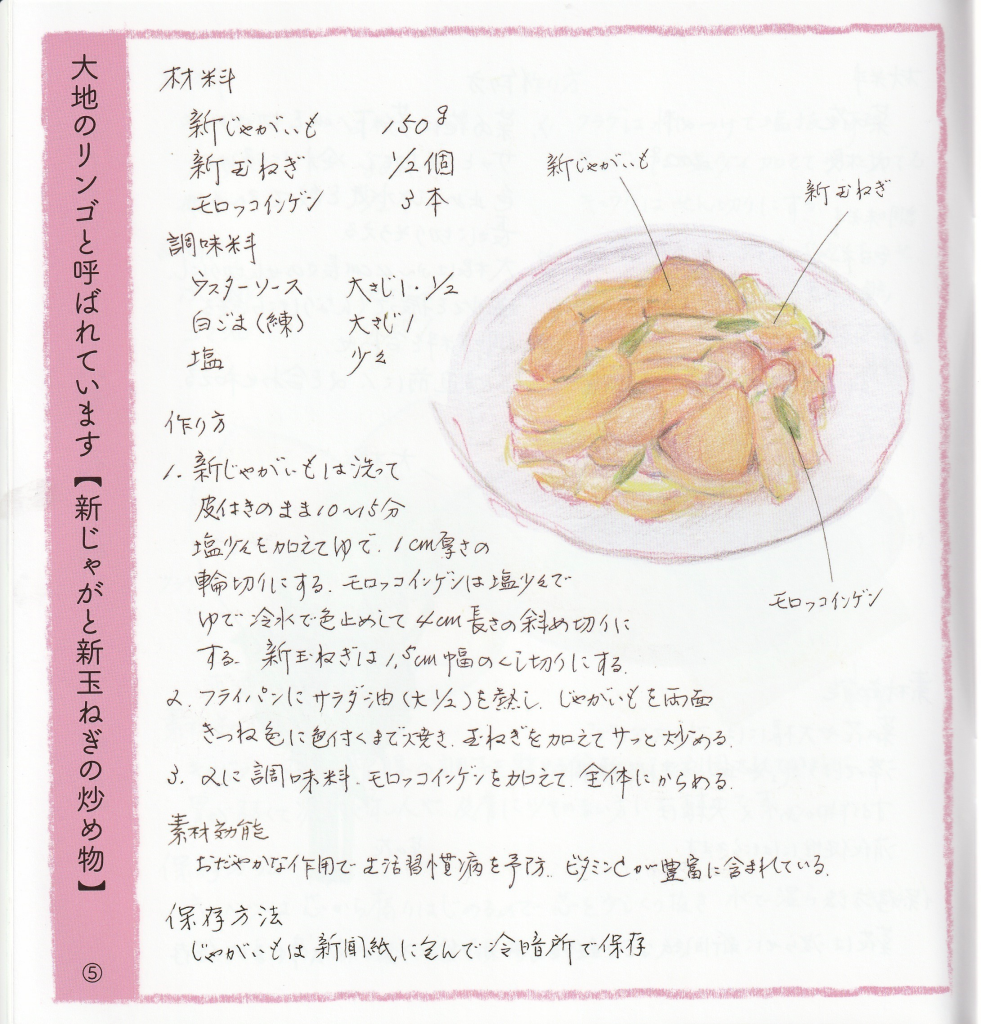 大地のリンゴと呼ばれています【新じゃがと新玉ねぎの炒め物】
⑤
材料
新じゃがいも 150g
新玉ねぎ 1/2個
モロッコインゲン 3本
調味料
ウスターソース 大さじ1・1/2
白ごま(練) 大さじ1
塩 少々
新じゃがいも
新玉ねぎ
モロッコインゲン
作り方
1. 新じゃがいもは洗って
皮付きのまま10〜15分
塩少々を加えてゆで、1cm厚さの
輪切りにする。モロッコインゲンは塩少々で
ゆで冷水で色止めして4cm長さの斜め切りに
する。新玉ねぎは1,5cm幅のくし切りにする。
2. フライパンにサラダ油(大1/2)を熱し、じゃがいもを両面
きつね色に色付くまで焼き、玉ねぎを加えてサッと炒める。
3. 2に調味料、モロッコインゲンを加えて、全体にからめる。
素材効能
おだやかな作用で生活習慣病を予防。ビタミンCが豊富に含まれている。
保存方法
じゃがいもは新聞紙に包んで冷暗所で保存